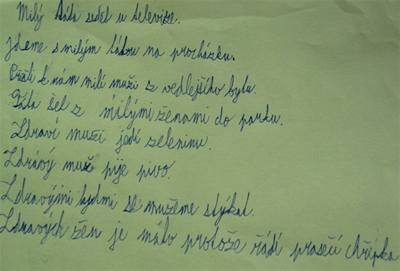 Milý táta seděl u televize.
Jdeme s milým tátou na procházku.
Přišli k nám milí muži z vedlejšího bytu.
šel z milými ženami do parku.
Zdraví muži jedí zeleninu.
Zdravý muž pije pivo.
Zdravými lydmi se mužeme stýkat.
Zdravých žen je málo protože řádí prasečí chřipka